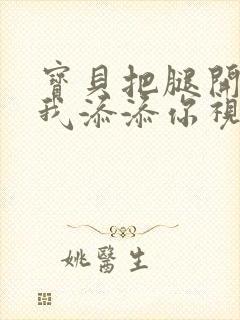 寶貝把腿開
我添添你視
姚醫生